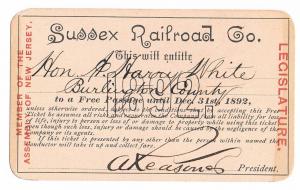 Sussex Railroad Co.
This will entitle
Hon. A. Harry White
Burlington County
to a Free Passage until Dec. 31st, 1892,
unless otherwise ordered, subject to conditions. By accepting this Free
Ticket he assumes all risks and exonerates the Company from all liability for loss
of life, injury to person or loss of or damage to property while using this ticket
even though such loss, injury or damage should be caused by the negligence of the
company or its agents.
If this ticket is presented by any other than the person within named the
conductor will take it up and collect fare.
President.
MEMBER OF THE
ASSEMBLY OF NEW JERSEY.
LEGISLATURE.